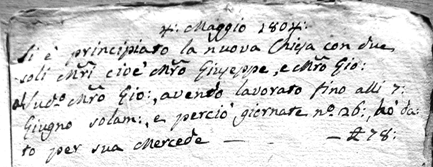 4: Maggio 1804:
Si è principiato la nuova Chiesa con due
soli Mr̃i cioè Mr̃o Giuseppe, e Mr̃o Gio:
Mr̃o Gio:, avendo lavorato fino alli 7:
Giugno solam:, e perciò giornate nº. 26:, hò da
to per sua Mercede — — 78: